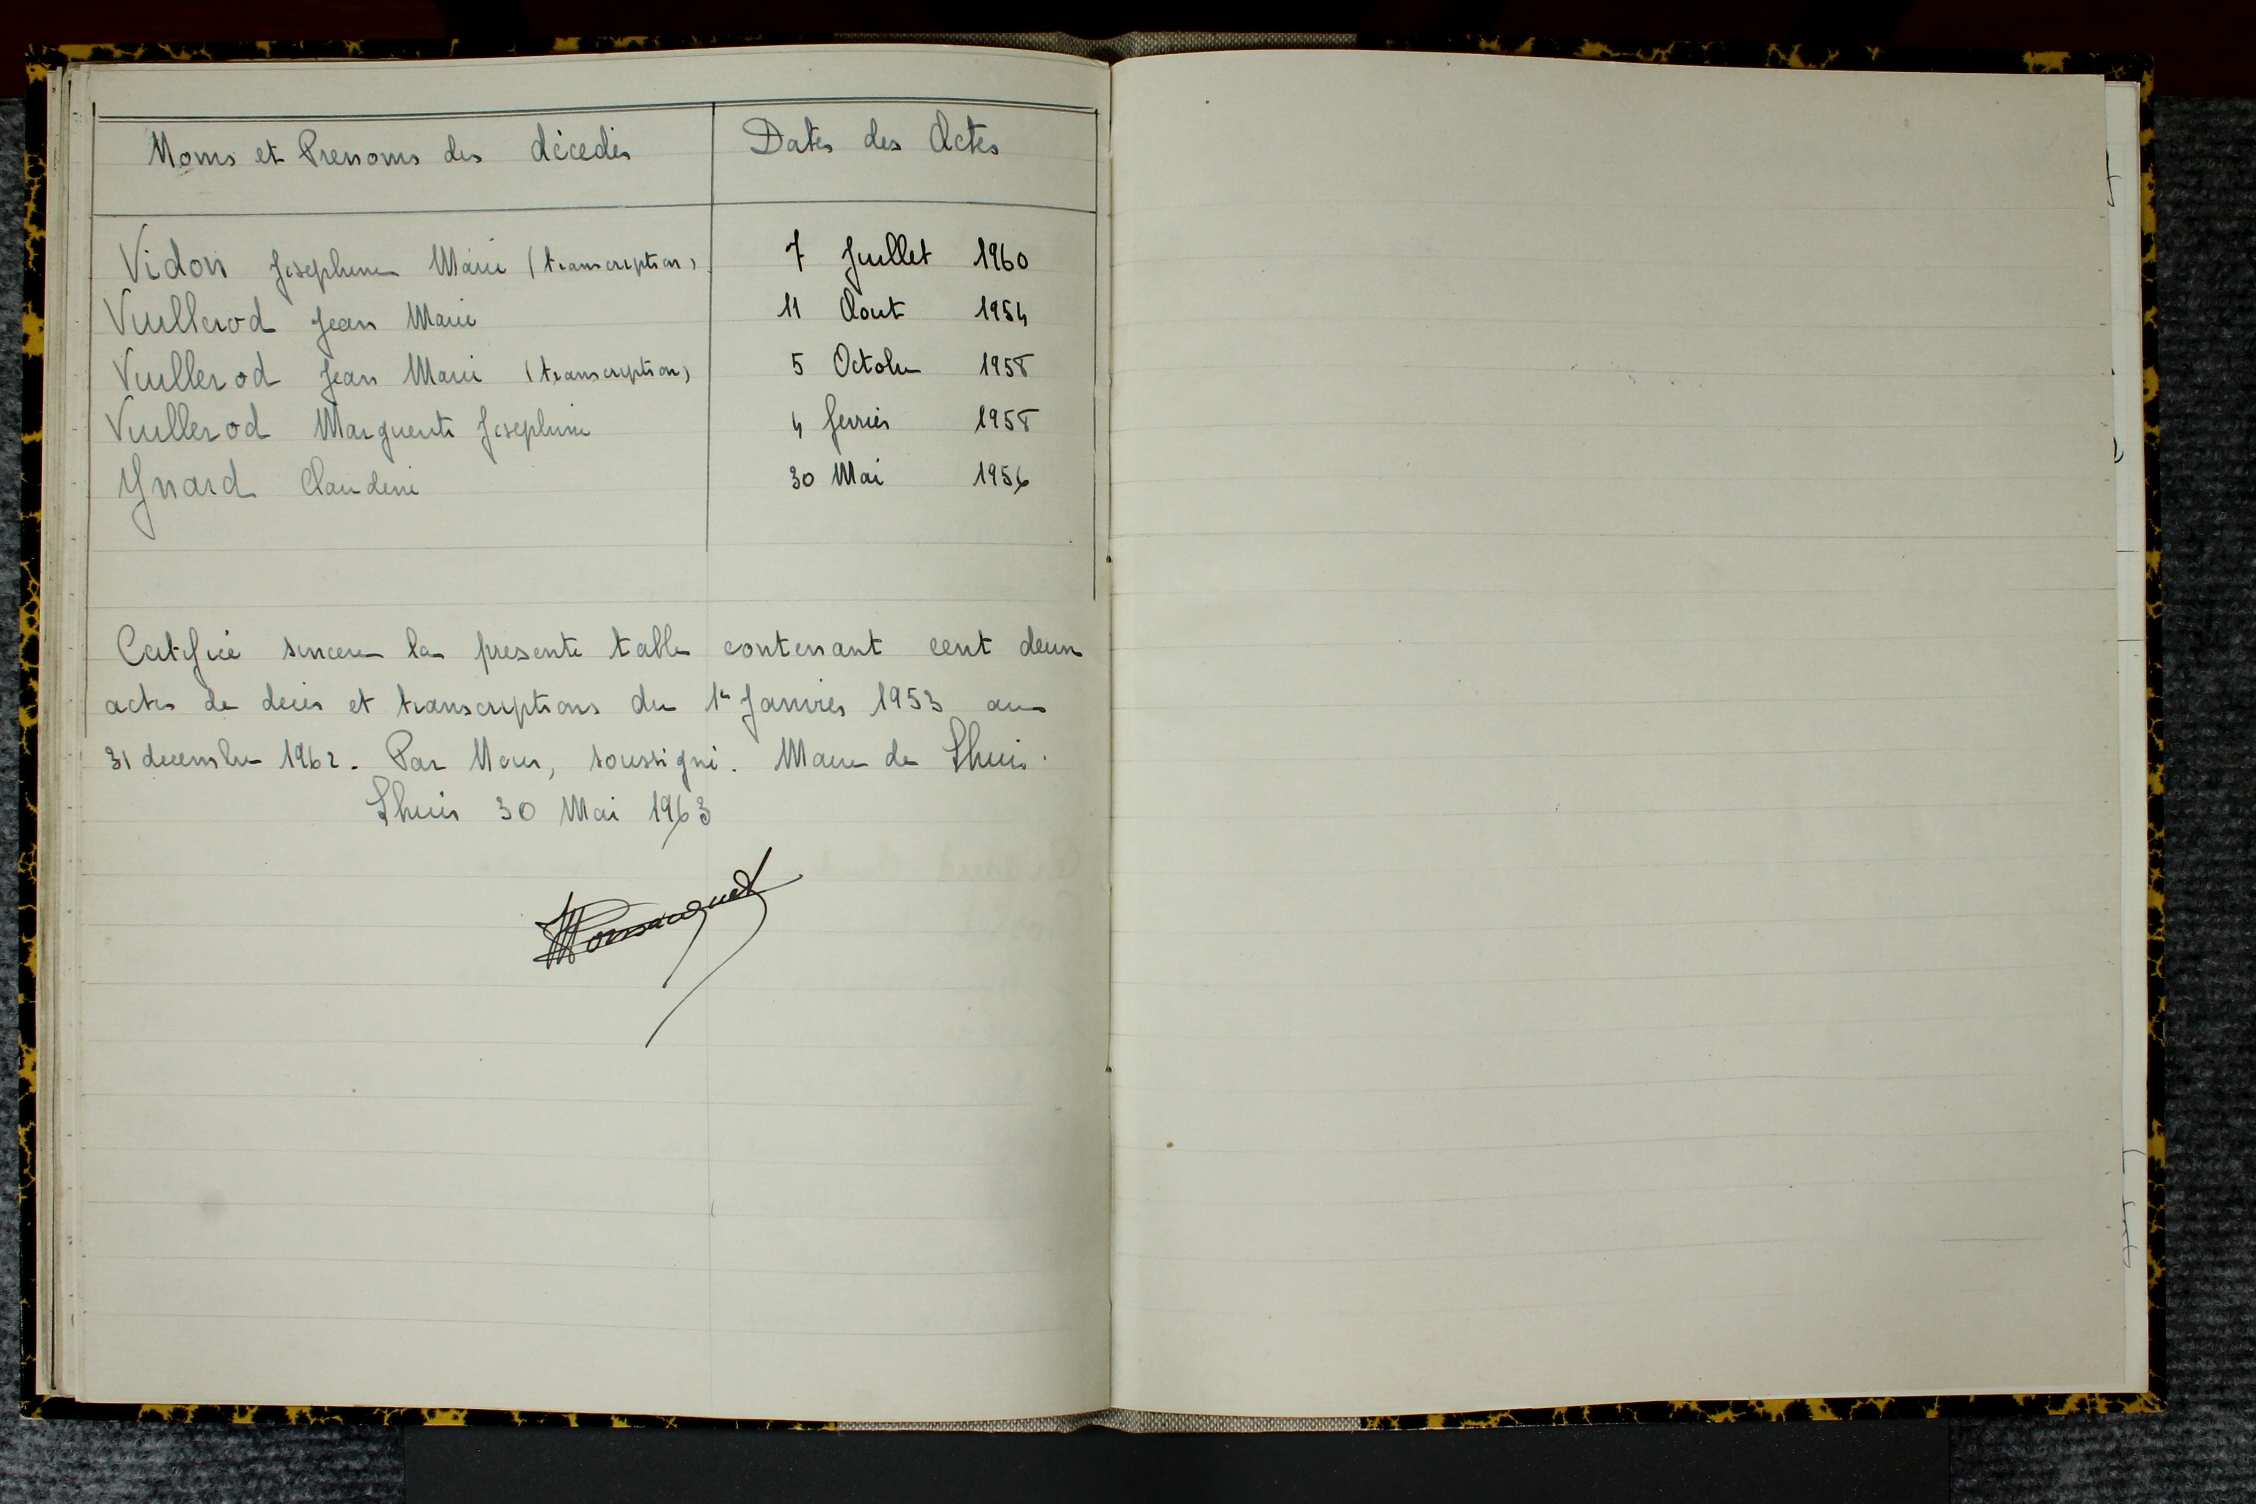 Noms et Prenoms des décedés Dates des Actes
Vidon Josephine Marie (transcription) 7 Juillet 1960
Vuillerod Jean Marie 11 Aout 1954
Vuillerod Jean Marie (transcription) 5 Octobre 1958
Vuillerod Marguerite Josephine 4 fevrier 1958
Ynard Claudine 30 Mai 1956
Certifié sincere la presente table contenant cent deux
actes de decès et transcriptions du 1er Janvier 1953 au
31 decembre 1962. Par Nous, soussigné. Maire de Lhuis.
Lhuis 30 Mai 1963